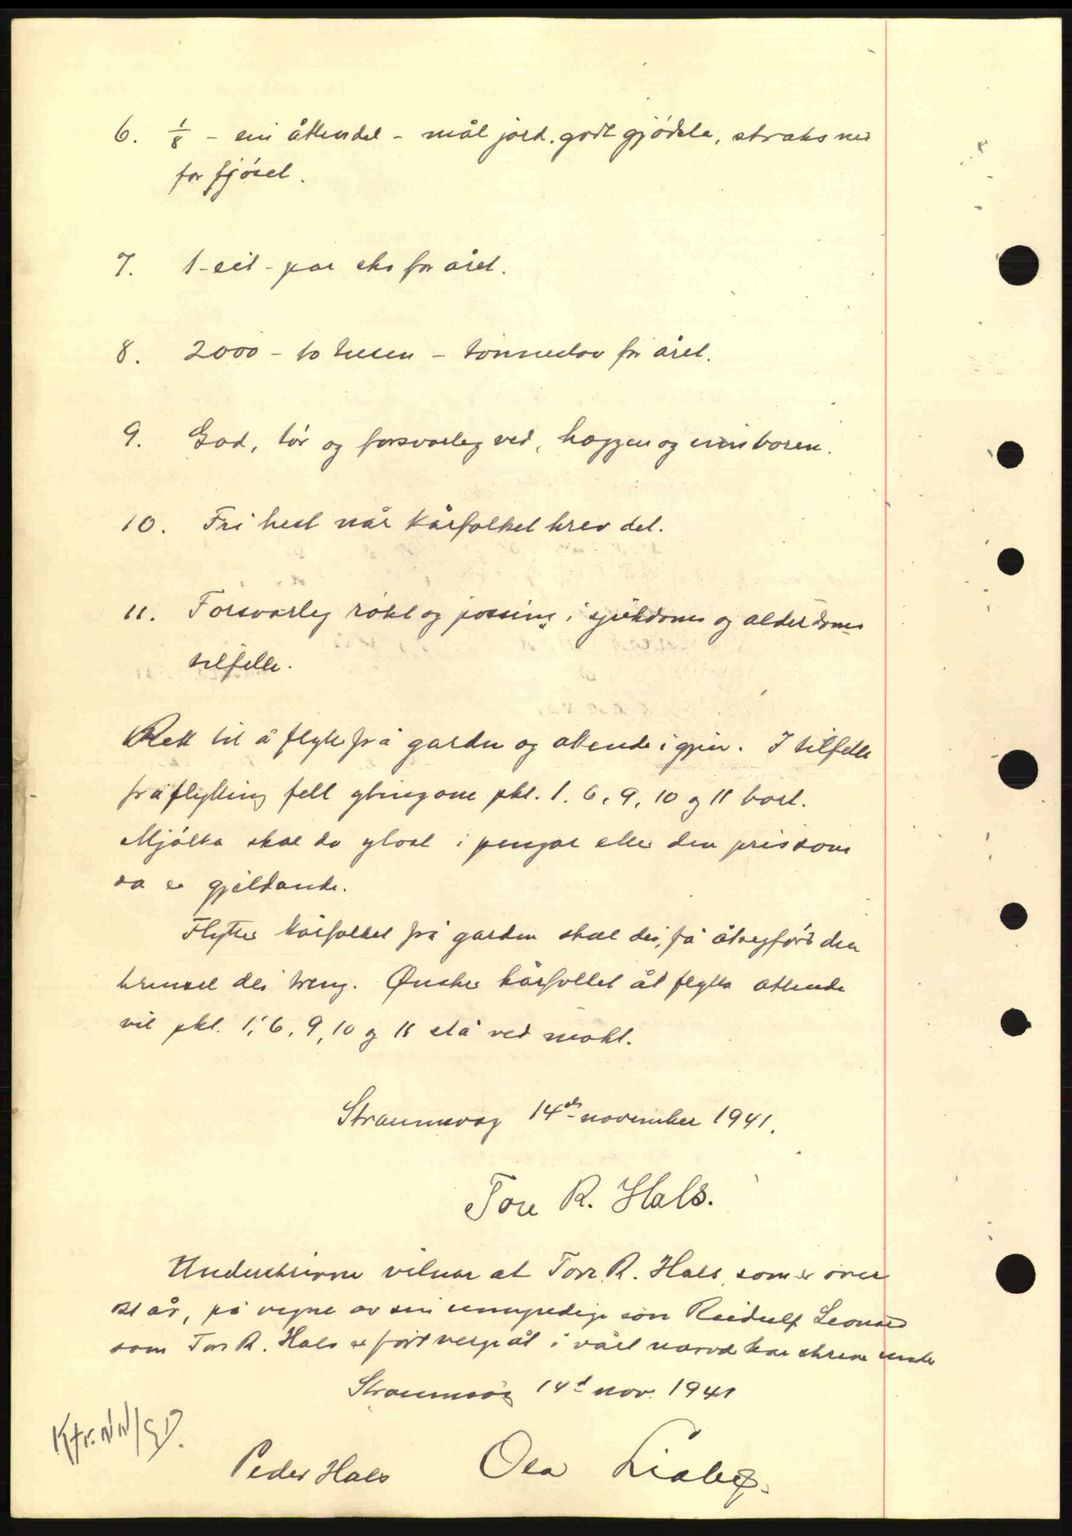 6. 1/8 - ein åttendel - mål jord, godt gjødsla, straks ned
for fjøset.
7. 1 - eit - par sko for året.
8. 2000 - to tusen - tonnetov for året.
9. God, tør og forsvarleg ved, hoggen og innboren.
10. Fri hest når kårfolket krev det.
11. Forsvarleg røkt og passing i sjukdoms og alderdoms
tilfelle.
Rett til å flytte frå garden og attende igjen. I tilfelle
fråflytting fell ytingane pkt. 1, 6, 9, 10 og 11 bort.
Mjølka skal da ytast i pengar etter den pris som
da er gjeldande.
Flyttar kårfolket frå garden skal dei få åtvegført den
brensel dei treng. Ønsker kårfolket åt flytta attende
vil pkt. 1, 6, 9, 10 og 11 stå ved makt.
Straumsvåg 14de november 1941.
Tore R. Hals.
Underskrivne vitnar at Tore R. Hals, som er over
21 år, på vegne av sin umyndige son Reidulf Leonard
som Tore R. Hals er ført verge åt i vårt nærvær har skreve under
Straumsvåg 14d nov. 1941
Ktr. NN/GD.
Peder Hals Ola Liabø.